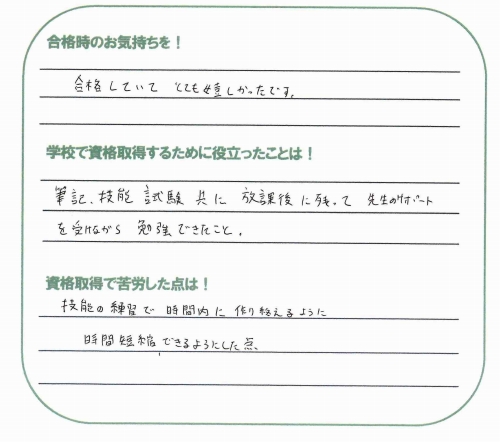 合格時のお気持ちを！
合格していて とても嬉しかったです。
学校で資格取得するために役立ったことは！
筆記、技能 試験 共に 放課後に残って 先生のサポート
を受けながら 勉強できたこと。
資格取得で苦労した点は！
技能の練習で 時間内に 作り終えるように
時間短縮できるようにした点。